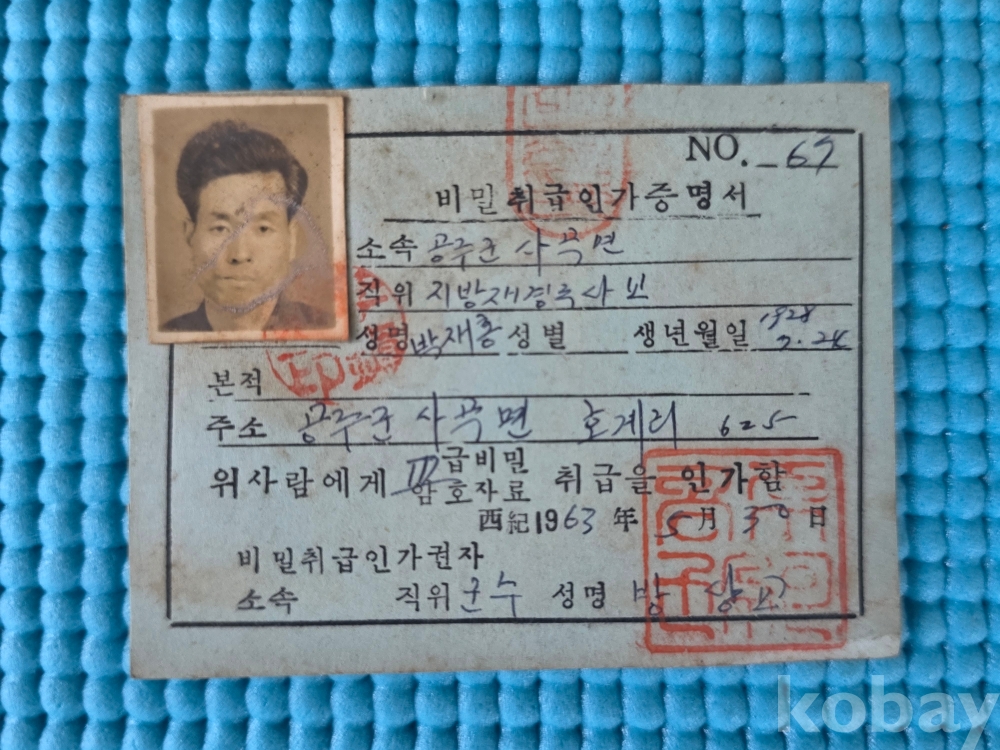 NO. 67
비밀취급인가증명서
소속 공주군 사곡면
직위 지방재경주사보
성명 박재홍 성별 생년월일 1928 7.24
본적
주소 공주군 사곡면 호계리 625
위사람에게 III급비밀 암호자료 취급을 인가함
西紀 1963 年 5 月 30 日
비밀취급인가권자
소속 직위 군수 성명 방
kobay